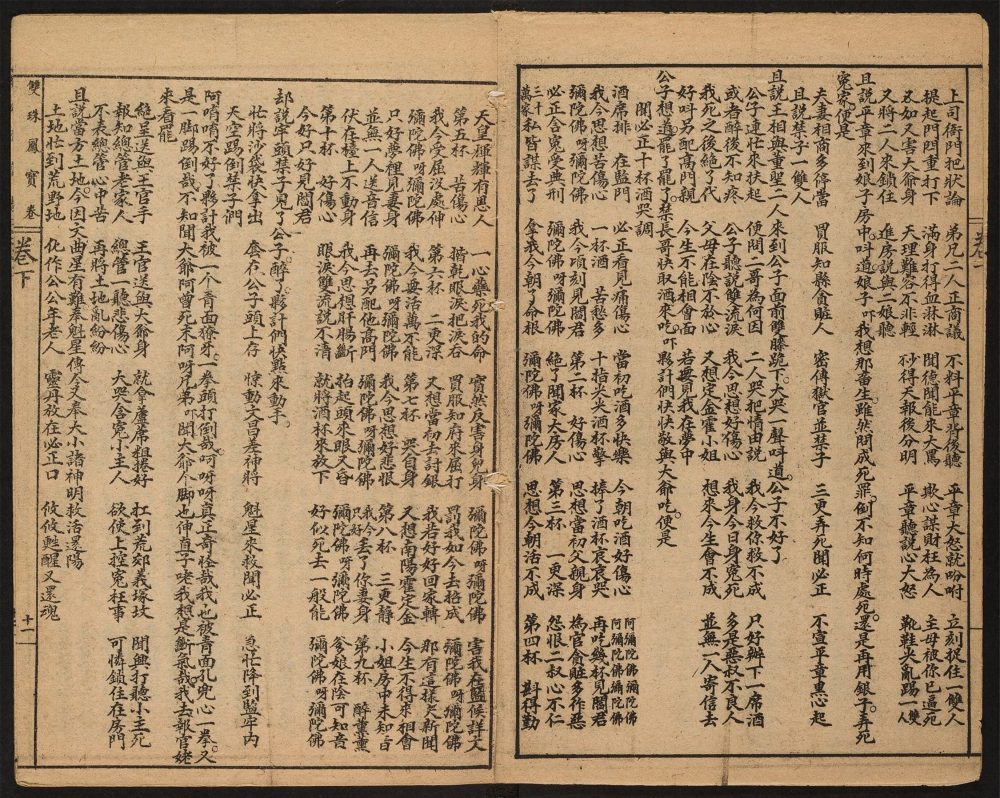 上司衙門把狀論 弟兄二人正商議 不料平章背後聽 平章大怒就吩咐 立刻捉住一雙人
提起門閂重打下 滿身打得血淋淋 聞德聞能來大罵 欺心謀財枉為人 主母被你已逼死
又害大爺身 天理難容不非輕 抄得天報後分明 平章聽說心大怒 靴鞋夾亂踢一雙人
又將二人來鎖住 進房說與二娘聽
且説平章來到娘子房中叫道娘子吓我想那畜生雖然問成死罪倒不知何時處死還是再用銀子弄死
冤家便是
夫妻相商多停當 買服知縣貪賍人 密傳獄官並禁子 三更弄死聞必正 不宣平章黑心起
且說禁子一雙人
且説王相與童聖二人來到公子面前雙膝跪下大哭一聲叫道公子不好了
公子連忙來扶起 便問二哥為何因 二人哭把情由說 我今救你救不成 只好辦下一席酒
或者醉後不知疼 公子聽說雙流淚 我今思想好傷心 我身今日身冤死 多是惡叔不良人
我死之後絕了代 父母在陰不放心 又想定金霍小姐 想來今生會不成 並無一人寄信去
好叫另配高門親 今生不能相會面 若要見我在夢中
公子想到追罷了罷了禁長哥快取酒來吃吓夥計們快敬與大爺吃便是
聞必正十杯酒哭調
酒席排 在監門 必正看見痛傷心 當初吃酒多快樂 今朝吃酒好傷心 阿彌陀佛彌陀佛 阿彌陀佛彌陀佛
我今思想苦傷心 一杯酒 苦愁多 十指尖尖酒杯擎 捧了酒杯哀哀哭 再吃幾杯見閻君
彌陀佛呀彌陀佛 我今頃刻見閻君 第二杯 好傷心 思想當初父親身 為官貪賍多作惡
必正含冤受典刑 彌陀佛呀彌陀佛 絕了聞家大房人 第三杯 一更深 怨恨二叔心不仁
三十萬家私皆謀去了 拿我今朝了命根 彌陀佛呀彌陀佛 思想今朝活不成 第四杯 斟得勤
天皇輝輝有恩人 一心藥死我的命 實然反害身兒身 彌陀佛呀彌陀佛 害我在監候詳文
第五杯 苦傷心 揩乾眼淚把淚吞 買服知府來屈打 罰我如今去招成 彌陀佛呀彌陀佛
我今受屈沒處伸 第六杯 二更深 又想當初去討銀 我若好好回家轉 那有這樣夾新聞
彌陀佛呀彌陀佛 我今要活萬不能 第七杯 哭自身 又想南陽霍定金 今生不得來相會
只好夢裡見妻身 彌陀佛呀彌陀佛 我今思想好悲恨 第八杯 三更靜 小姐房中未知音
並無一人送音信 再去另配他高門 彌陀佛呀彌陀佛 我今只好丟了你妻身 第九杯 醉薰薰
伏在檯上不動身 我今思想肝腸斷 抬起頭來眼又昏 彌陀佛呀彌陀佛 爹娘在陰可知音
今好只好見閻君 眼淚雙流説不清 就將酒杯來放下 好似死去一般能 彌陀佛呀彌陀佛
第十杯 好傷心
却説牢頭禁子見了公子醉了夥計們快點來動手
忙將沙袋快拿出 套在公子頭上存 惊動文昌差神將 魁星來救聞必正 急忙降到監牢内
天空踢倒禁子們
阿唷唷不好了夥計我被一個青面獠牙一拳頭打倒哉呵呀呀真正奇怪哉我也被青面孔兜心一拳又
是一脚踢倒哉不知聞大爺阿曾死末阿呀兄弟吓聞大爺个脚也伸直子咾我想是斷氣哉我去報官姥
來看罷
繞呈送與王官手 王官送與大爺身 就拿蘆席來捲好 扛到荒郊義塚坟 聞興打聽小主死
報知總管老家人 總管一聽悲傷心 大哭含冤小主人 欲使上控冤枉事 可憐鎖住在房門
不表總管心中苦 再將土地亂紛紛
且説當方土地今因文曲星有難奉魁星傳令又奉大小諸神明救活還陽
土地忙到荒野地 化作公公年老人 靈丹放在必正口 攸攸甦醒又還魂
雙珠鳳寶卷
卷下
十一